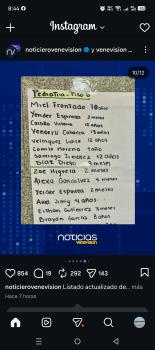 8:44
Instagram
noticierovenevision y venevision ...
10/12
Pediatria - Piso 6
Miel Frontado 10 año
Yender Espinoza 2 meses
Castillo Victoria 12 años
Yenderly Cabarca 13 años
Velasquez Luisa 12 años
Camilo Moreno 1 año
Santiago Jimenez 12 años
Diaz Diego 3 meses
Zoe Higuera 2 meses
Alexa Gonzalez 4 meses
Yender Espinoza 2 meses
Axel Jimmy 4 años
Eithan Gutierrez 3 meses
Brayan Garcia 8 años
noticias
venevisión
854 19 292 143
noticierovenevision Listado actualizado de... más
Hace 7 horas